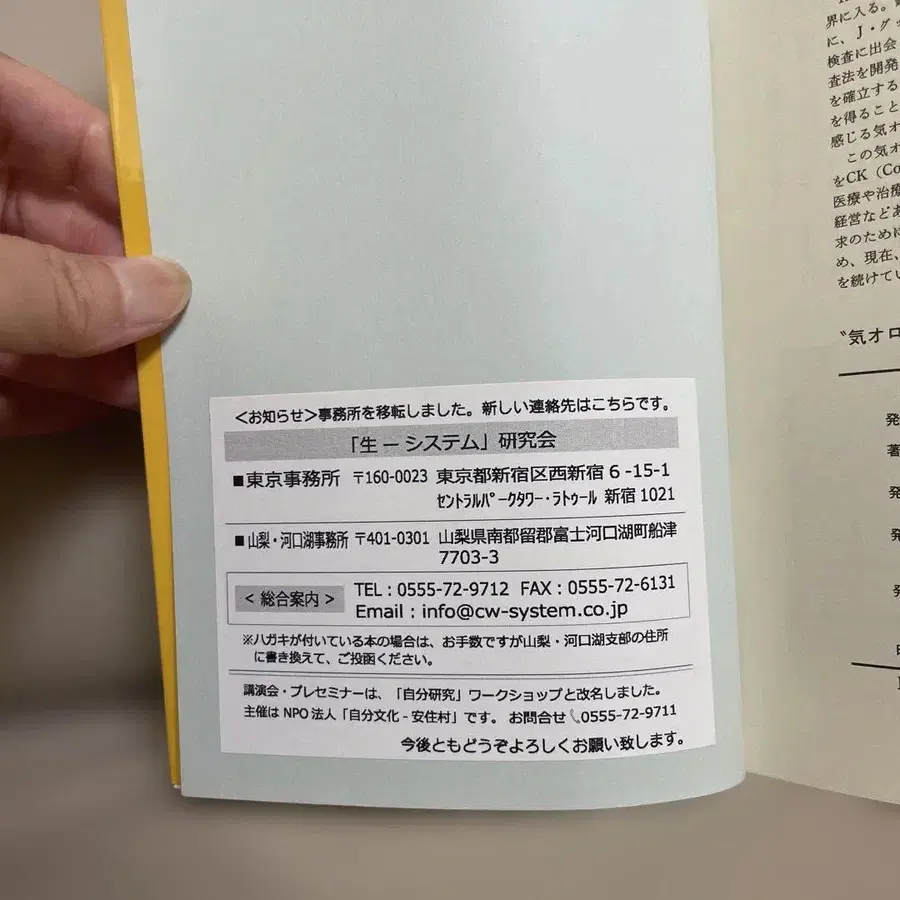 <お知らせ>事務所を移転しました。新しい連絡先はこちらです。
「生 ー システム」研究会
■東京事務所 〒160-0023 東京都新宿区西新宿 6 -15-1
ｾﾝﾄﾗﾙﾊﾟｰｸﾀﾜｰ・ﾗﾄｩｰﾙ 新宿 1021
■山梨・河口湖事務所 〒401-0301 山梨県南都留郡富士河口湖町船津
7703-3
< 総合案内 >
TEL : 0555-72-9712 FAX : 0555-72-6131
Email : info@cw-system.co.jp
※ハガキが付いている本の場合は、お手数ですが山梨・河口湖支部の住所
に書き換えて、ご投函ください。
講演会・プレセミナーは、「自分研究」ワークショップと改名しました。
主催は NPO 法人「自分文化 - 安住村」です。 お問合せ📞0555-72-9711
今後ともどうぞよろしくお願い致します。
界に入る。
に、J・グッ
検査に出会
査法を開発
を確立する
を得ること
感じる気オ
この気オ
をCK（Co
医療や治療
経営などあ
求のために
め、現在、
を続けてい
〝気オロ
発
著
発
発
発